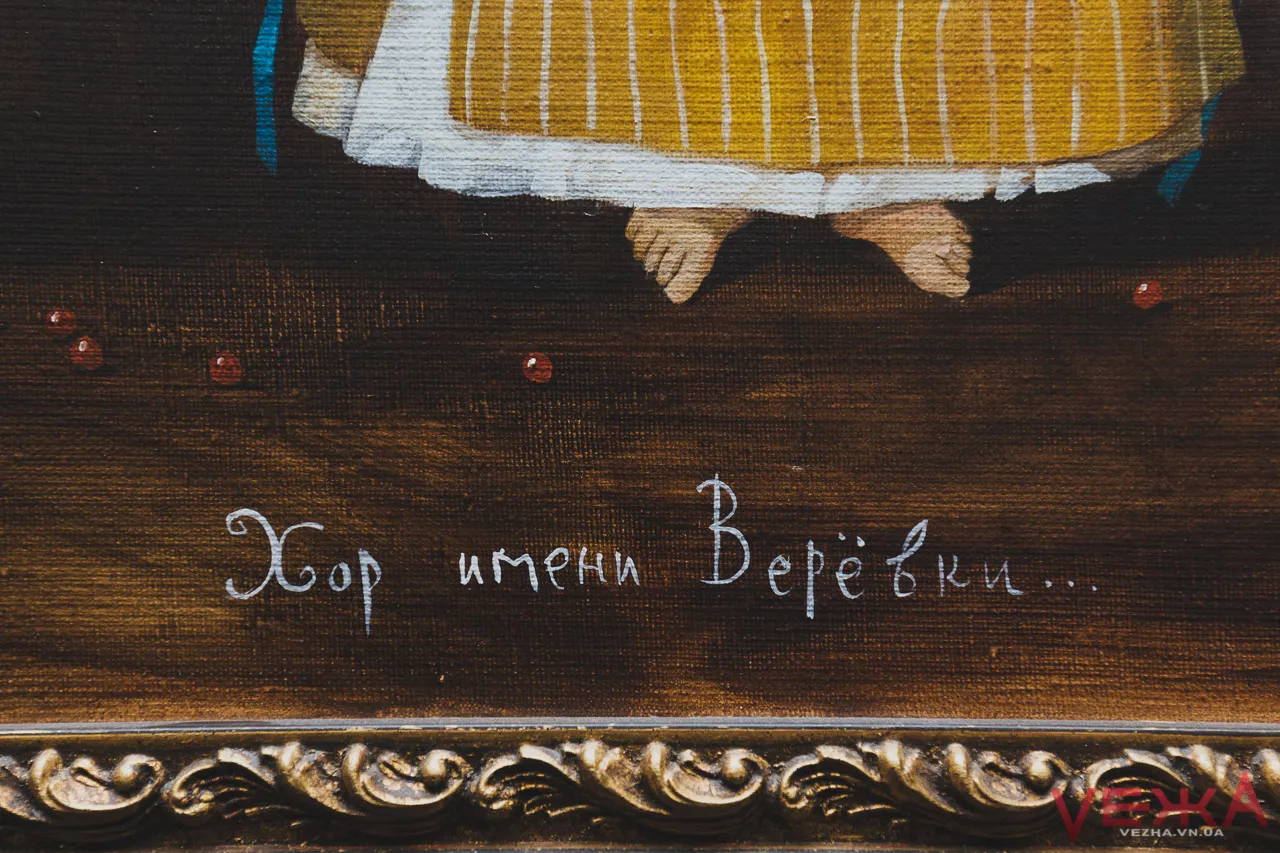 Хор имени Верёвки...
VЕЖА
VEZHA.VN.UA